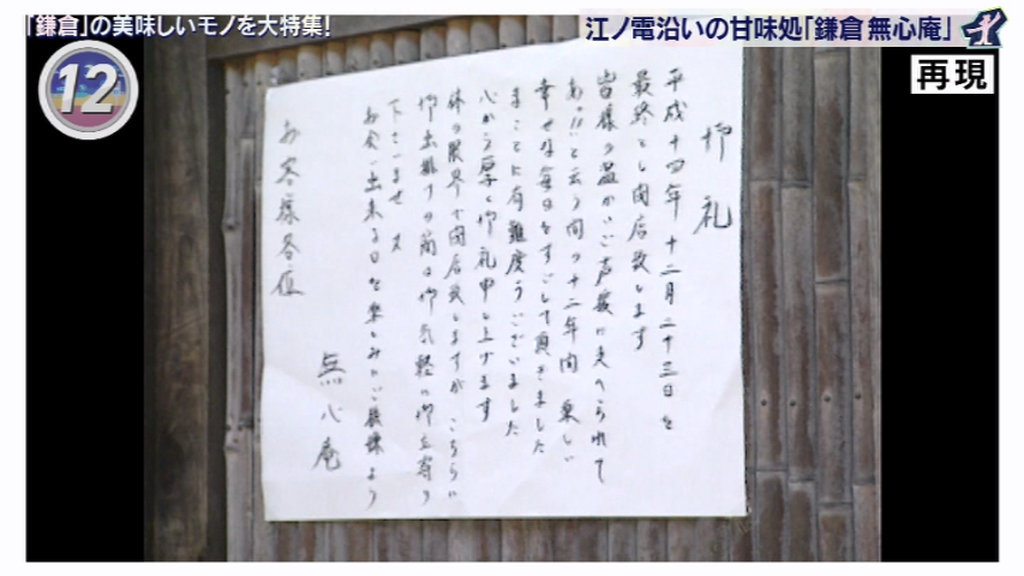 「鎌倉」の美味しいモノを大特集!
江ノ電沿いの甘味処「鎌倉 無心庵」
12
再現
御礼
平成十四年 十二月二十三日を
最終とし閉店致します
皆様の温かいご声援に支へられて
あっという間の十二年間 楽しい
幸せな毎日をすごして頂きました
まことに有難度うございました
心から厚く御礼申し上げます
体の限界で閉店致しますが こちらに
御出掛けの節は御気軽に御立寄り
下さいませ 又
お会い出来る日を楽しみに
無心庵
お客様各位